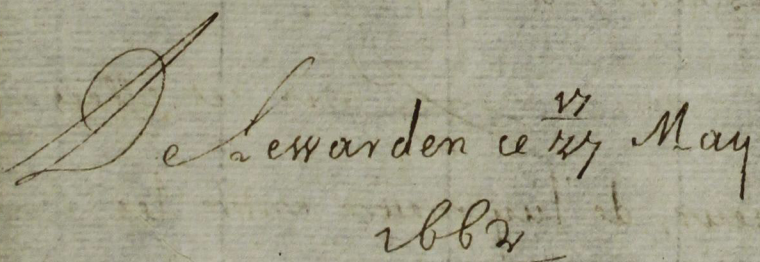 De Lewarden ce 17/27 May
1662